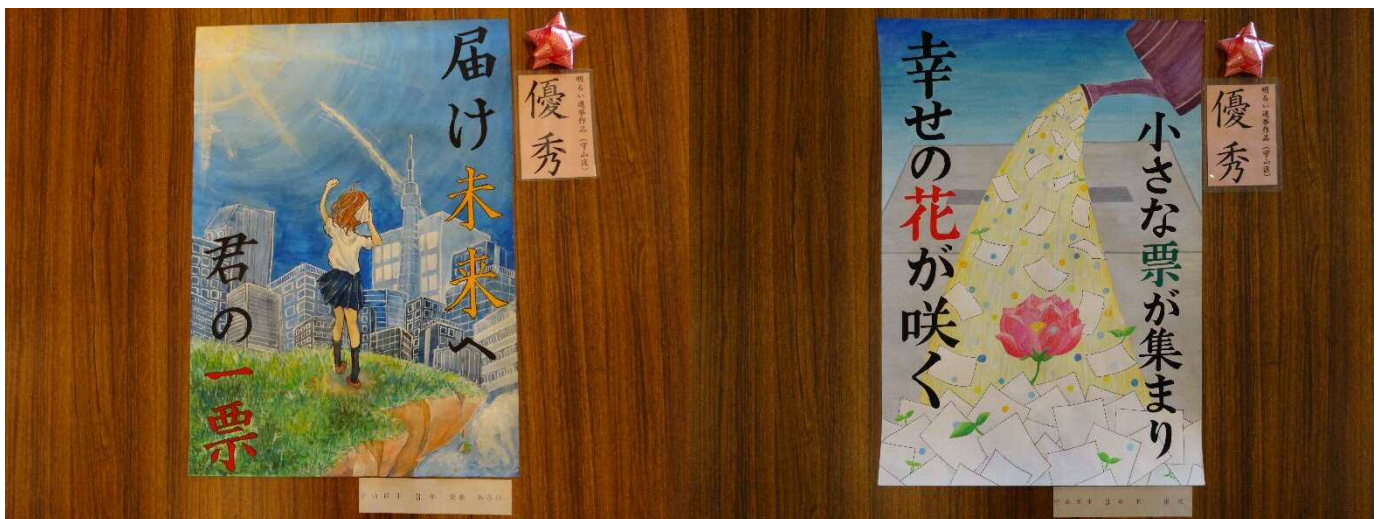 届け未来へ
君の一票
優秀
明るい選挙作品(守山区)
小さな票が集まり
幸せの花が咲く
優秀
明るい選挙作品(守山区)